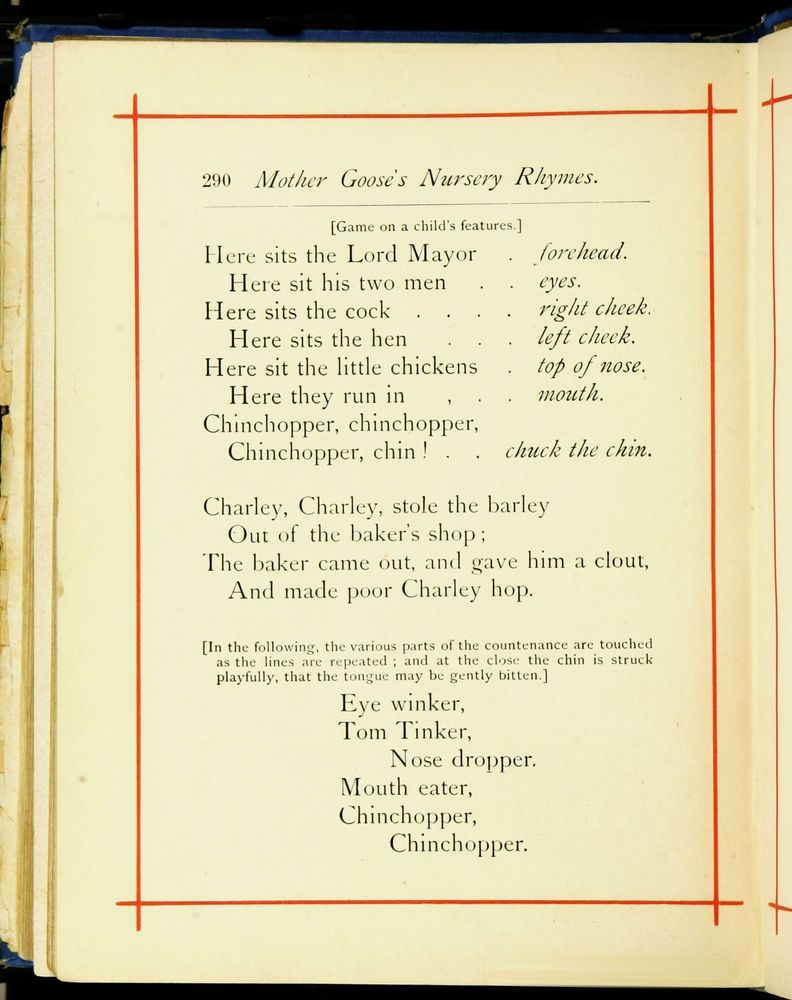 290 Mother Goose's Nursery Rhymes.
[Game on a child's features.]
Here sits the Lord Mayor . forehead.
Here sit his two men . . eyes.
Here sits the cock . . . . right cheek.
Here sits the hen . . . left cheek.
Here sit the little chickens . top of nose.
Here they run in , . . mouth.
Chinchopper, chinchopper,
Chinchopper, chin ! . . chuck the chin.
Charley, Charley, stole the barley
Out of the baker's shop ;
The baker came out, and gave him a clout,
And made poor Charley hop.
[In the following, the various parts of the countenance are touched
as the lines are repeated ; and at the close the chin is struck
playfully, that the tongue may be gently bitten.]
Eye winker,
Tom Tinker,
Nose dropper.
Mouth eater,
Chinchopper,
Chinchopper.